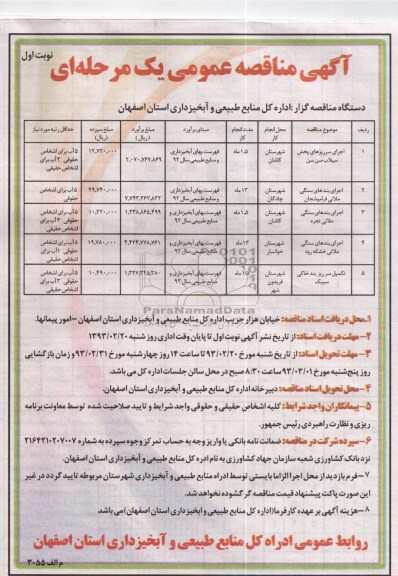 نوبت اول
آگهی مناقصه عمومی یک مرحله‌ای
دستگاه مناقصه گزار :اداره کل منابع طبیعی و آبخیزداری استان اصفهان
ردیف موضوع مناقصه محل انجام کار مدت انجام کار مبنای برآورد مبلغ برآورد (ریال) مبلغ سپرده (ریال) حداقل رتبه مورد نیاز
۱ اجرای سرریزهای پخش سیلاب سن سن شهرستان کاشان ۱.۵ ماه فهرست بهای آبخیزداری و منابع طبیعی سال ۹۲ ۵ آب برای اشخاص حقوقی ۴ آب برای اشخاص حقیقی
۲ اجرای بندهای سنگی ملاتی شهرستان چادگان ۱۳ ماه فهرست بهای آبخیزداری و منابع طبیعی سال ۹۲ ۵ آب برای اشخاص حقوقی
۳ اجرای بندهای سنگی ملاتی تجره شهرستان کاشان ۱.۵ ماه فهرست بهای آبخیزداری و منابع طبیعی سال ۹۲ ۵ آب برای اشخاص حقوقی
۴ اجرای بندهای سنگی ملاتی خشکه رود شهرستان خوانسار ۱۳ ماه فهرست بهای آبخیزداری و منابع طبیعی سال ۹۲ ۵ آب برای اشخاص حقوقی
۵ تکمیل سرریز بند خاکی سیبک شهرستان فریدون شهر ۱.۵ ماه فهرست بهای آبخیزداری و منابع طبیعی سال ۹۳ ۵ آب برای اشخاص حقوقی
ParsNamadData
۱- محل دریافت اسناد مناقصه: خیابان هزار جریب اداره کل منابع طبیعی و آبخیزداری استان اصفهان -امور پیمانها.
۲- مهلت دریافت اسناد: از تاریخ نشر آگهی نوبت اول تا پایان وقت اداری روز شنبه ۱۳۹۳/۰۲/۲۰
۳- مهلت تحویل اسناد: از تاریخ شنبه مورخ ۹۳/۰۲/۲۰ تا ساعت ۱۴ روز چهارشنبه مورخ ۹۳/۰۲/۳۱ و زمان بازگشایی
روز پنج‌شنبه مورخ ۹۳/۰۳/۰۱ ساعت ۸:۳۰ صبح در محل سالن جلسات اداره کل می باشد.
۴- محل تحویل اسناد مناقصه: دبیرخانه اداره کل منابع طبیعی و آبخیزداری استان اصفهان.
۵- پیمانکاران واجد شرایط: کلیه اشخاص حقیقی و حقوقی واجد شرایط و تایید صلاحیت شده توسط معاونت برنامه
ریزی و نظارت راهبردی رئیس جمهور.
۶- سپرده شرکت در مناقصه: ضمانت نامه بانکی یا واریز وجه به حساب تمرکز وجوه سپرده به شماره ۲۱۶۴۲۱۰۲۰۷۰۰۷
نزد بانک کشاورزی شعبه سازمان جهاد کشاورزی به نام ادره کل منابع طبیعی و آبخیزداری استان اصفهان.
۷- فرم بازدید از محل اجرا الزاما بایستی توسط ادراه منابع طبیعی و آبخیزداری شهرستان مربوطه تایید گردد در غیر
این صورت پاکت پیشنهاد قیمت مناقصه گر گشوده نخواهد شد.
۸- هزینه آگهی بر عهده کارفرما(اداره کل منابع طبیعی و آبخیزداری استان اصفهان)می باشد
روابط عمومی ادراه کل منابع طبیعی و آبخیزداری استان اصفهان
م الف ۳۰۵۵